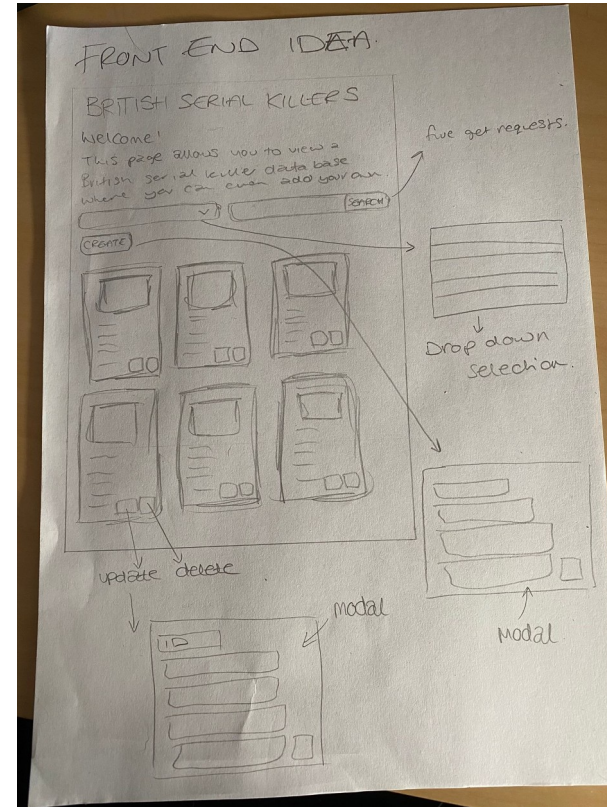 FRONT END IDEA.
BRITISH SERIAL KILLERS
Welcome!
This page allows you to view a
British serial killer data base
where you can even add your own
five get requests.
SEARCH
CREATE
Drop down
selection.
update delete
modal
Modal
ID